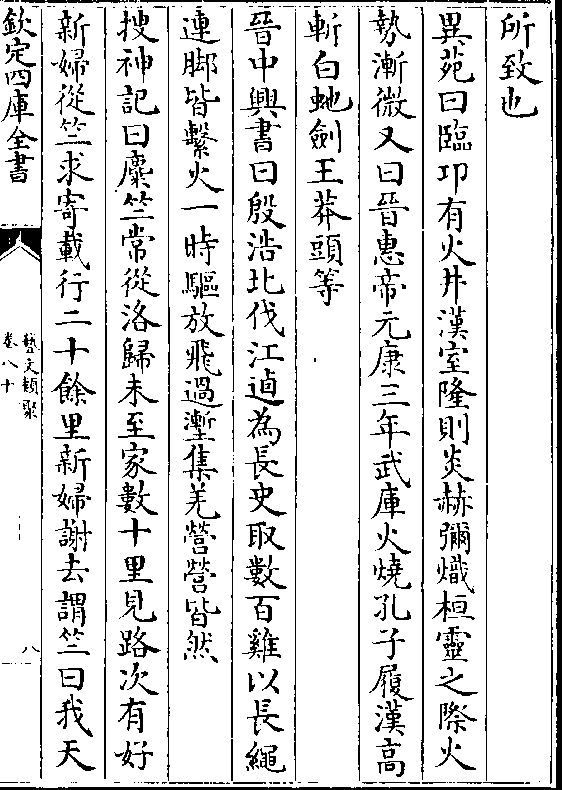 所致也
異苑曰臨邛有火井漢室隆則炎赫彌熾桓靈之際火
勢漸微又曰晉惠帝元康三年武庫火燒孔子履漢高
斬白虵劍王莽頭等
晉中興書曰殷浩北伐江逌為長史取數百雞以長繩
連脚皆繫火一時驅放飛過塹集羌營營皆然
搜神記曰麋竺常從洛歸未至家數十里見路次有好
新婦從竺求寄載行二十餘里新婦謝去謂竺曰我天
欽定四庫全書
藝文類聚
卷八十
八